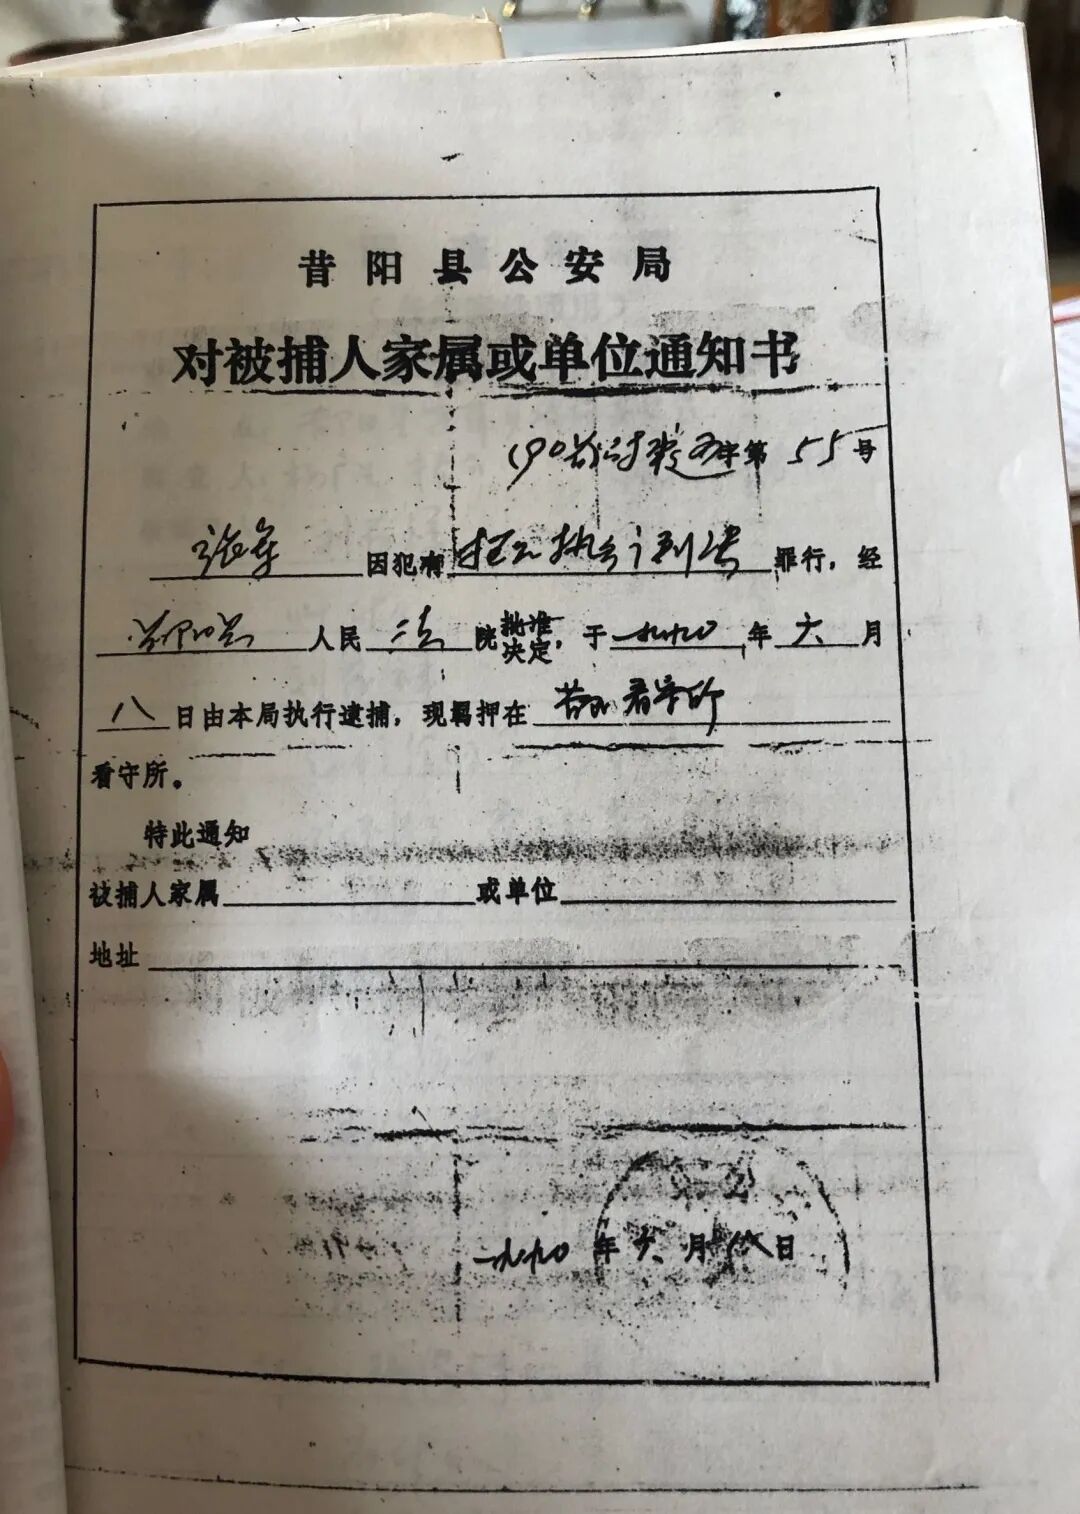 昔阳县公安局
对被捕人家属或单位通知书
字第 55 号
因犯有 拒不执行判决 罪行，经
人民 法 院 批准 决定，于 一九九0 年 六 月
八 日由本局执行逮捕，现羁押在 昔阳看守所
看守所。
特此通知
被捕人家属 或单位
地址
一九九0 年 六 月 八 日